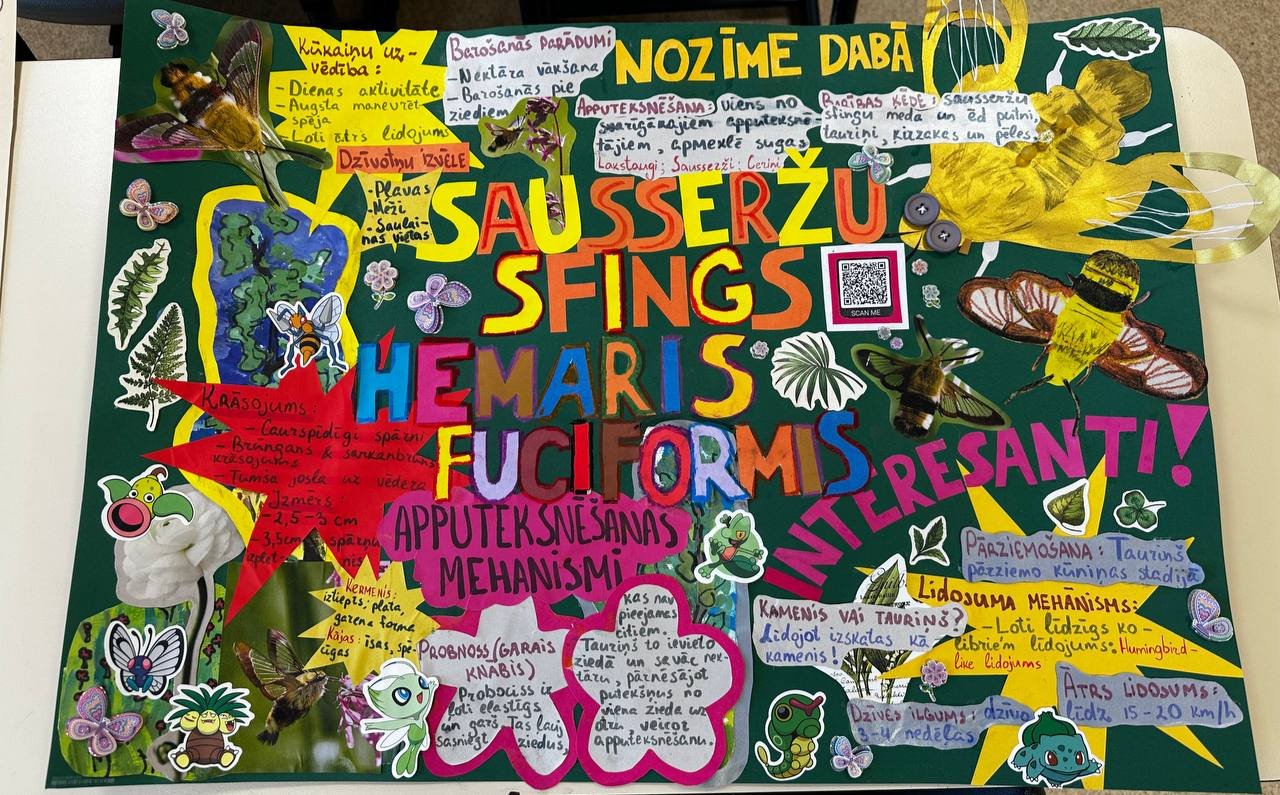 Kūkaiņu uz-
vēdība:
- Dienas aktivitāte
- Augsta manevrēt-
spēja
- Loti ātrs lidojums
Dzīvotņu izvēle
- Pļavas
- Meži
- Saulai-
nas vietas
Barošanās paradumi
- Nektāra vākšana
- Barošanās pie
ziediem
NOZĪME DABĀ
Apputeksnēšana: viens no
svarīgākajiem apputeksnē-
tājiem, apmeklē sugas
Lakstaugi; Sausserži; Ceriņi
Barības ķēde: sausseržu
sfingu medā un ēd putni,
tauriņi, ķirzakas un peles.
SAUSSERŽU
SFINGS
SCAN ME
HEMARIS
FUCIFORMIS
Krāsojums:
- Caurspīdīgi spārni
- Brūngans & sarkanbrūns
krāsojums
- Tumša josla uz vēdera
Izmērs:
- 2,5-3 cm
- 3,5cm spārnu
Ķermenis:
iztiepts, plata,
garena forma
Kājas: īsas, spē-
cīgas
APPUTEKSNĒŠANAS
MEHANISMI
PROBNOSS (GARAIS
KNĀBIS)
Probociss iz
ļoti elastīgs
un garš. Tas ļauj
sasniegt ziedus,
kas nav
pieejamas
citiem.
Tauriņš to ievieto
ziedā un savāc nek-
tāru, pārnēsājot
putekšņus no
viena zieda uz
otru, veicot
apputeksnēšanu.
INTERESANTI!
PĀRZIEMOŠANA: Tauriņš
pārziemo kūniņas stadijā
KAMENIS VAI TAURIŅŠ?
Lidojot izskatas kā
kamenis!
Lidojuma mehānisms:
- Loti līdzīgs ko-
libriem lidojums: Humingbird-
like lidojums
Dzīves ilgums: dzīvo
3-4 nedēļas
Ātrs lidosums:
līdz 15-20 km/h